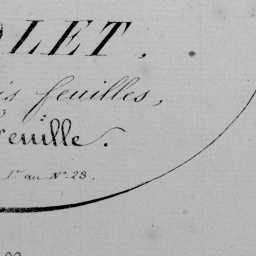 LET,
feuilles,
euille.
1er au No. 28.